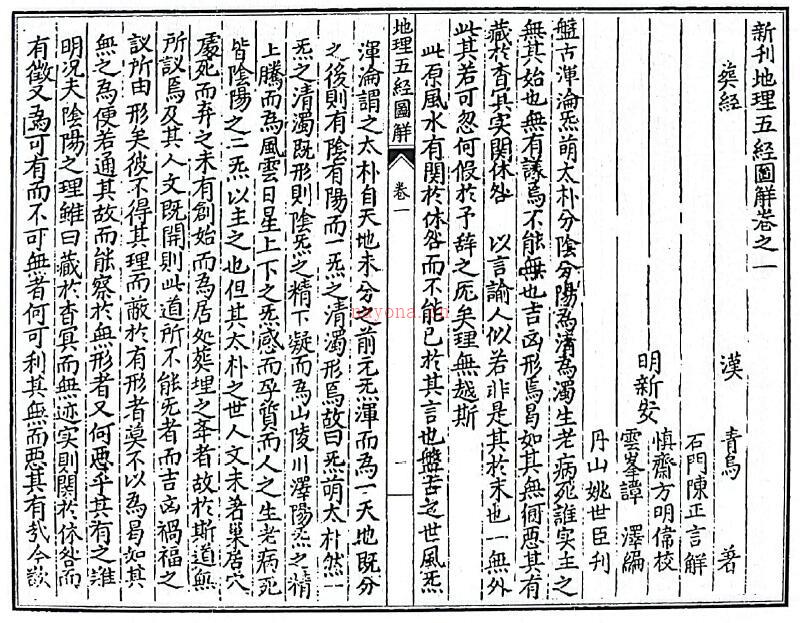 新刊地理五經圖解卷之一
葬經
漢 青烏 著
石門陳正言解
慎齋方明偉校
明新安
雲峯譚 澤編
丹山姚世臣刋
盤古渾淪炁萌太朴分陰分陽為清為濁生老病死誰實主之
無其始也無有議焉不能無也吉凶形焉曷如其無何惡其有
藏於杳冥實關休咎 以言諭人似若非是其於末也一無外
此其若可忽何假於予辞之厖矣理無越斯
此原風水有関於休咎而不能已於其言也盤古之世風炁
地理五經圖解
卷一
一
渾淪謂之太朴自天地未分之前元炁渾而為一天地既分
之後則有陰有陽而一炁之清濁形焉故曰炁萌太朴然一
炁之清濁既形則陰炁之精下凝而為山陵川澤陽炁之精
上騰而為風雲日星上下之炁感而孕質而人之生老病死
皆陰陽之二炁以主之也但其太朴之世人文未著巢居穴
處死而弃之未有創始而為居处葬埋之夲者故於斯道無
所議焉及其人文既開則此道所不能无者而吉凶禍福之
議所由形矣彼不得其理而蔽於有形者莫不以為曷如其
無之為便若通其故而能察於無形者又何惡乎其有之誰
明况夫陰陽之理雖曰藏於杳冥而無迹实則関於休咎而
有徵又為可有而不可無者何可利其無而惡其有哉今欲